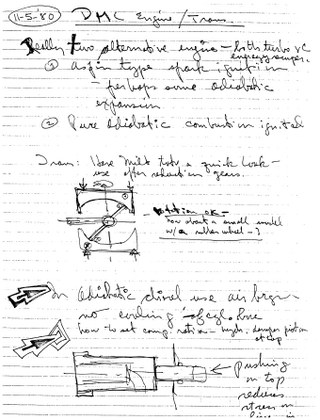 11-5-80 DMC Engine/Trans
Really two alternative engines – both turbo &
energy recuper.
① type spark ignition
– perhaps some adiabatic
expansion
② Pure adiabatic combustion ignited
Trans: Have Milt take a quick look –
use after reduction gears.
rotation ok –
how about a small model
w/a rubber wheel – ?
In Adiabatic diesel use air brgs –
no cooling of cyl. bore
how to set comp. ratio – high, damper piston
at top
pushing
on top
reduces
stress on